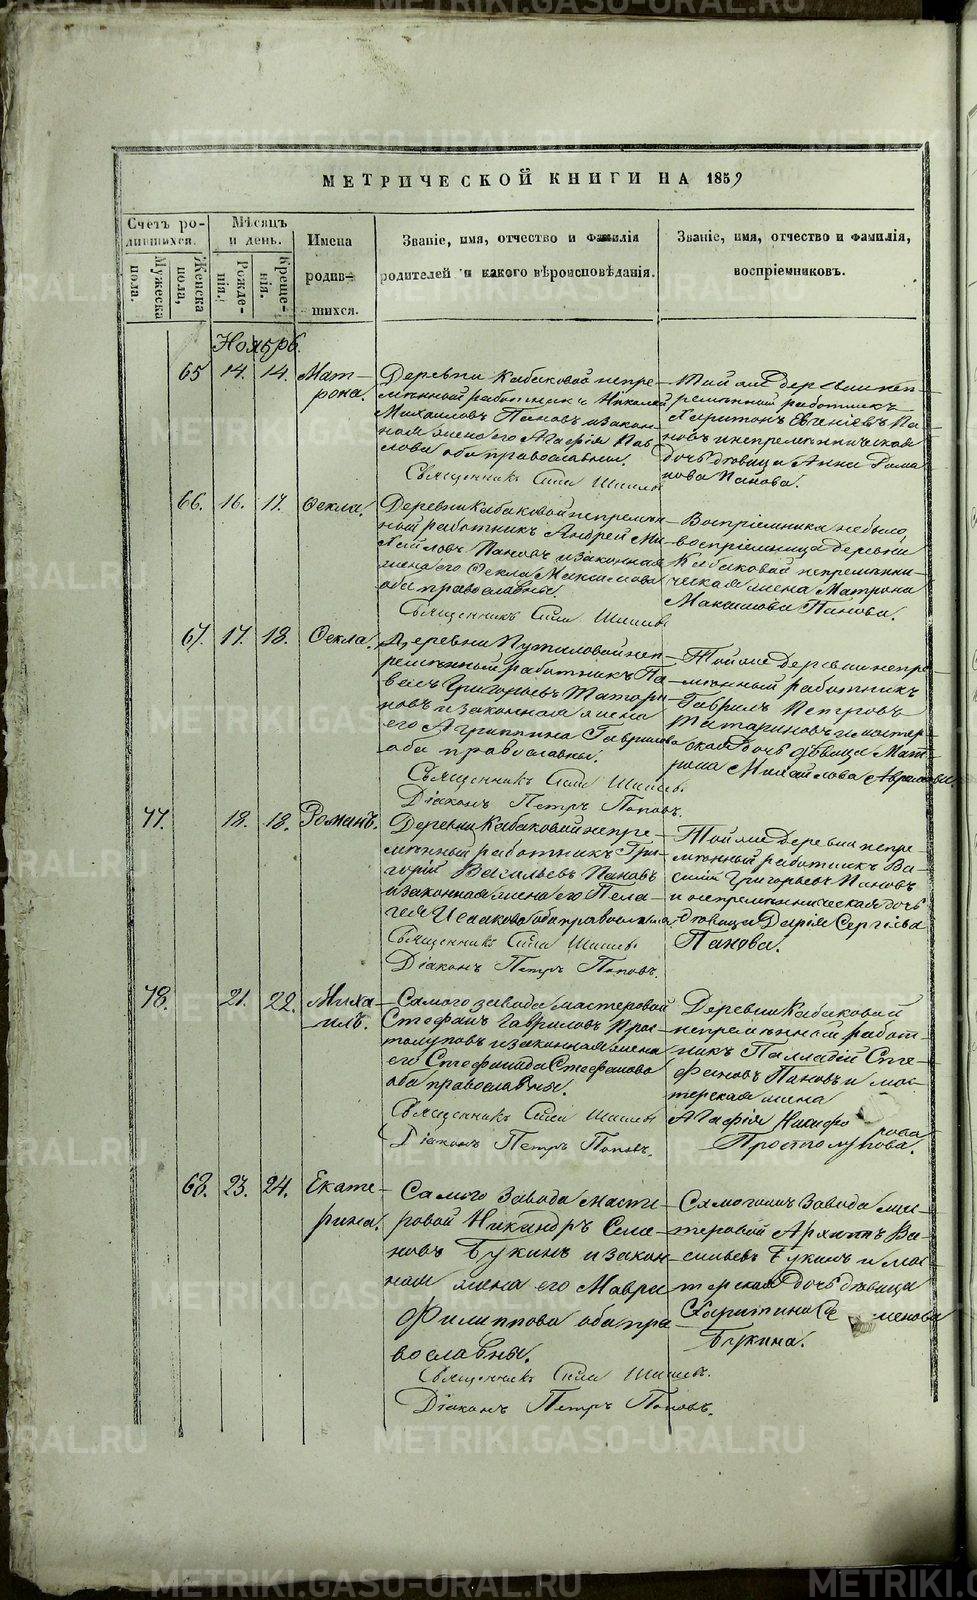 МЕТРИЧЕСКОЙ КНИГИ НА 1859
Счетъ ро-
дившихся.
Мужеска
пола.
Женска
пола,
Мѣсяцъ
и день.
Рожде-
нія.
Креще-
нія.
Имена
родив-
шихся.
Званіе, имя, отчество и фамилія
родителей и какого вѣроисповѣданія.
Званіе, имя, отчество и фамилія,
воспріемниковъ.
Ноябрь.
65 14. 14. Мат-
рона.
Деревни Кабаковой непре-
мѣнный работникъ Николай
Михайловъ Пановъ и закон-
ная жена его Агафія Пав-
лова оба православны.
Священникъ Шишевъ
Той же деревни неп-
ремѣнный работникъ
Харитонъ Евгеніевъ Па-
новъ и непремѣнническая
дочь дѣвица Анна Рома
нова Панова.
66. 16. 17. Ѳекла.
Деревни Кабаковой непремѣн-
ный работникъ Андрей Ми-
хайловъ Пановъ и законная
жена его Ѳекла Максимова
оба православны.
Священникъ Шишевъ
Воспріемника не было
воспріемница деревни
Кабаковой непремѣнни-
ческая жена Матрона
Максимова Панова.
67. 17. 18. Ѳекла.
Деревни Путиловой неп-
ремѣнный работникъ Па-
велъ Григорьевъ Татари-
новъ и законная жена
его Агриппина Гаврилова
оба православны.
Священникъ Шишевъ
Діаконъ Петръ Поповъ.
Той же деревни непре-
мѣнный работникъ
Гаврилъ Петровъ
Татариновъ и мастер-
ская дочь дѣвица Мат-
рона Михайлова
77. 18. 18. Романъ.
Деревни Кабаковой непре-
мѣнный работникъ Гри-
горій Васильевъ Пановъ
и законная жена его Пела-
гея Исакова оба православны.
Священникъ Шишевъ
Діаконъ Петръ Поповъ.
Той же деревни непре
мѣнный работникъ Ва-
силій Григорьевъ Пановъ
и непремѣнническая дочь
дѣвица Дарія Сергѣева
Панова.
78. 21. 22. Миха-
илъ.
Самого завода мастеровой
Стефанъ Гавриловъ Прос-
толуповъ и законная жена
его Стефанида Стефанова
оба православны.
Священникъ Шишевъ
Діаконъ Петръ Поповъ.
Деревни Кабаковой
непремѣнный работ-
никъ Палладій Сте-
фановъ Пановъ и мас-
терская жена
Агафія Никифо рова
Простолупова.
68. 23. 24. Екате-
рина.
Самого завода масте-
ровой Никандръ Семе-
новъ Букинъ и закон-
ная жена его Мавра
Филиппова оба пра
вославны.
Священникъ Шишевъ.
Діаконъ Петръ Поповъ.
завода мас-
теровой Архиппъ Ва-
сильевъ Букинъ и мас-
терская дочь дѣвица
Харитина Се менова
Букина.
METRIKI.GASO-URAL.RU